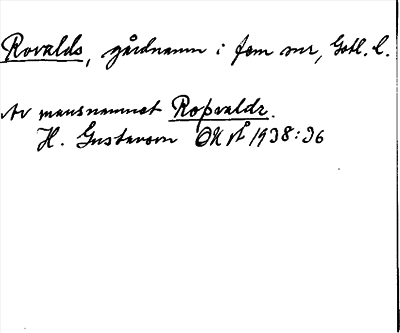 Rovalds, gårdnamn i fem snr, Gotl. l.
Av mansnamnet Roþvaldr.
H. Gustavson ONÅ 1938:36